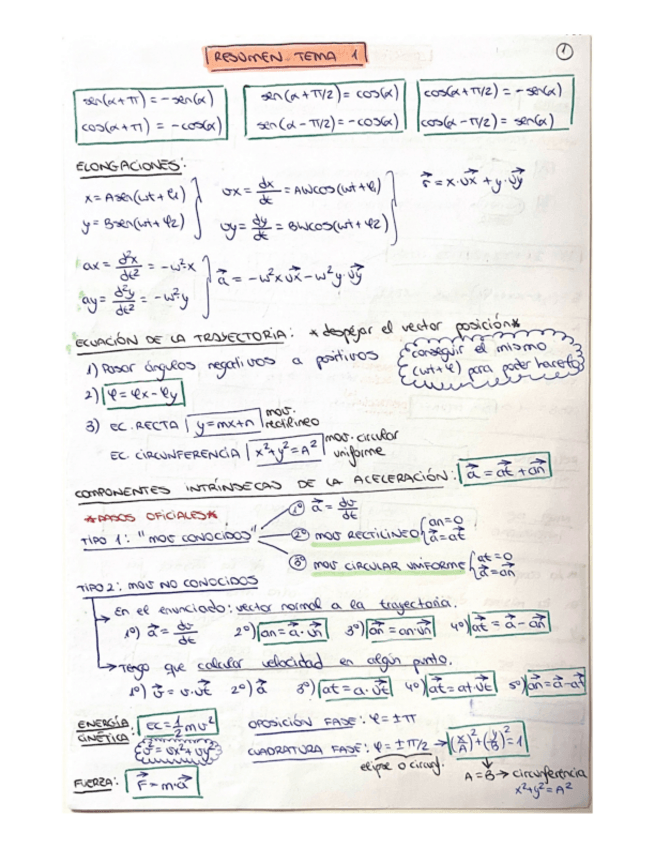 RESUMEN TEMA 1
1
sen(α+π) = -sen(α)
cos(α+π) = -cos(α)
sen(α+π/2) = cos(α)
sen(α-π/2) = -cos(α)
cos(α+π/2) = -sen(α)
cos(α-π/2) = sen(α)
ELONGACIONES:
x = Asen(ωt+φ1)
y = Bsen(ωt+φ2)
vx = dx/dt = Aωcos(ωt+φ1)
vy = dy/dt = Bωcos(ωt+φ2)
r⃗ = x·u⃗x + y·u⃗y
ax = d²x/dt² = -ω²·x
ay = d²y/dt² = -ω²·y
a⃗ = -ω²x u⃗x - ω²y·u⃗y
ECUACIÓN DE LA TRAYECTORIA: *despejar el vector posición*
1) Pasar ángulos negativos a positivos
conseguir el mismo
(ωt+φ) para poder hacerlo
2) φ = φx - φy
3) EC. RECTA | y = mx+n | mov. rectilineo
EC. CIRCUNFERENCIA | x²+y² = A² | mov. circular uniforme
COMPONENTES INTRÍNSECAS DE LA ACELERACIÓN: a⃗ = a⃗t + a⃗n
*PASOS OFICIALES*
TIPO 1: "MOV CONOCIDOS"
1º a⃗ = dv/dt
2º MOV RECTILINEO { an=0
a⃗=a⃗t
3º MOV CIRCULAR UNIFORME { at=0
a⃗=a⃗n
TIPO 2: MOV NO CONOCIDOS
En el enunciado: vector normal a la trayectoria.
1º) a⃗ = dv⃗/dt 2º) an = a⃗·u⃗n 3º) a⃗n = an·u⃗n 4º) a⃗t = a⃗ - a⃗n
Tengo que calcular velocidad en algún punto.
1º) v⃗ = v·u⃗t 2º) a⃗ 3º) at = a·u⃗t 4º) a⃗t = at·u⃗t 5º) a⃗n = a⃗ - a⃗t
ENERGÍA CINÉTICA: Ec = 1/2 mv²
v² = vx² + vy²
FUERZA: F⃗ = m·a⃗
OPOSICIÓN FASE: φ = ±π
CUADRATURA FASE: φ = ±π/2 → (x/A)² + (y/B)² = 1
elipse o circunf.
A = B → circunferencia
x²+y² = A²